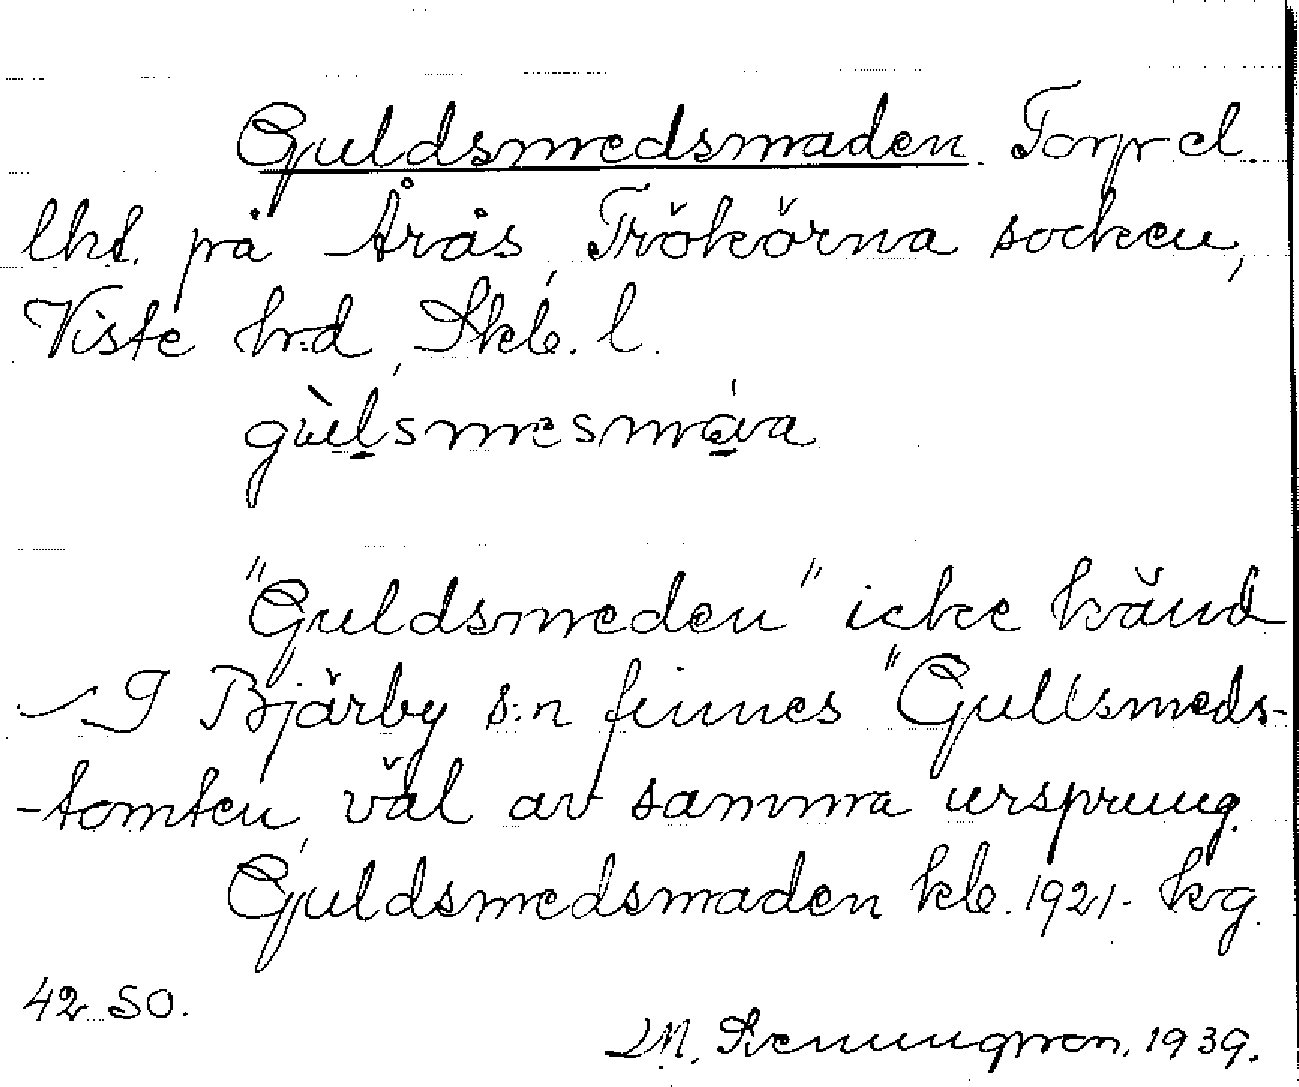 Guldsmedsmaden. Torp el.
lht. på Årås, Trökörna socken,
Viste hrd, Skb. l.
gùlsmesmáva
"Guldsmeden" icke känd
I Bjärby s:n finnes "Gullsmeds-
-tomten, väl av samma ursprung.
Guldsmedsmaden kb. 1921. kg.
42 SO.
1939.